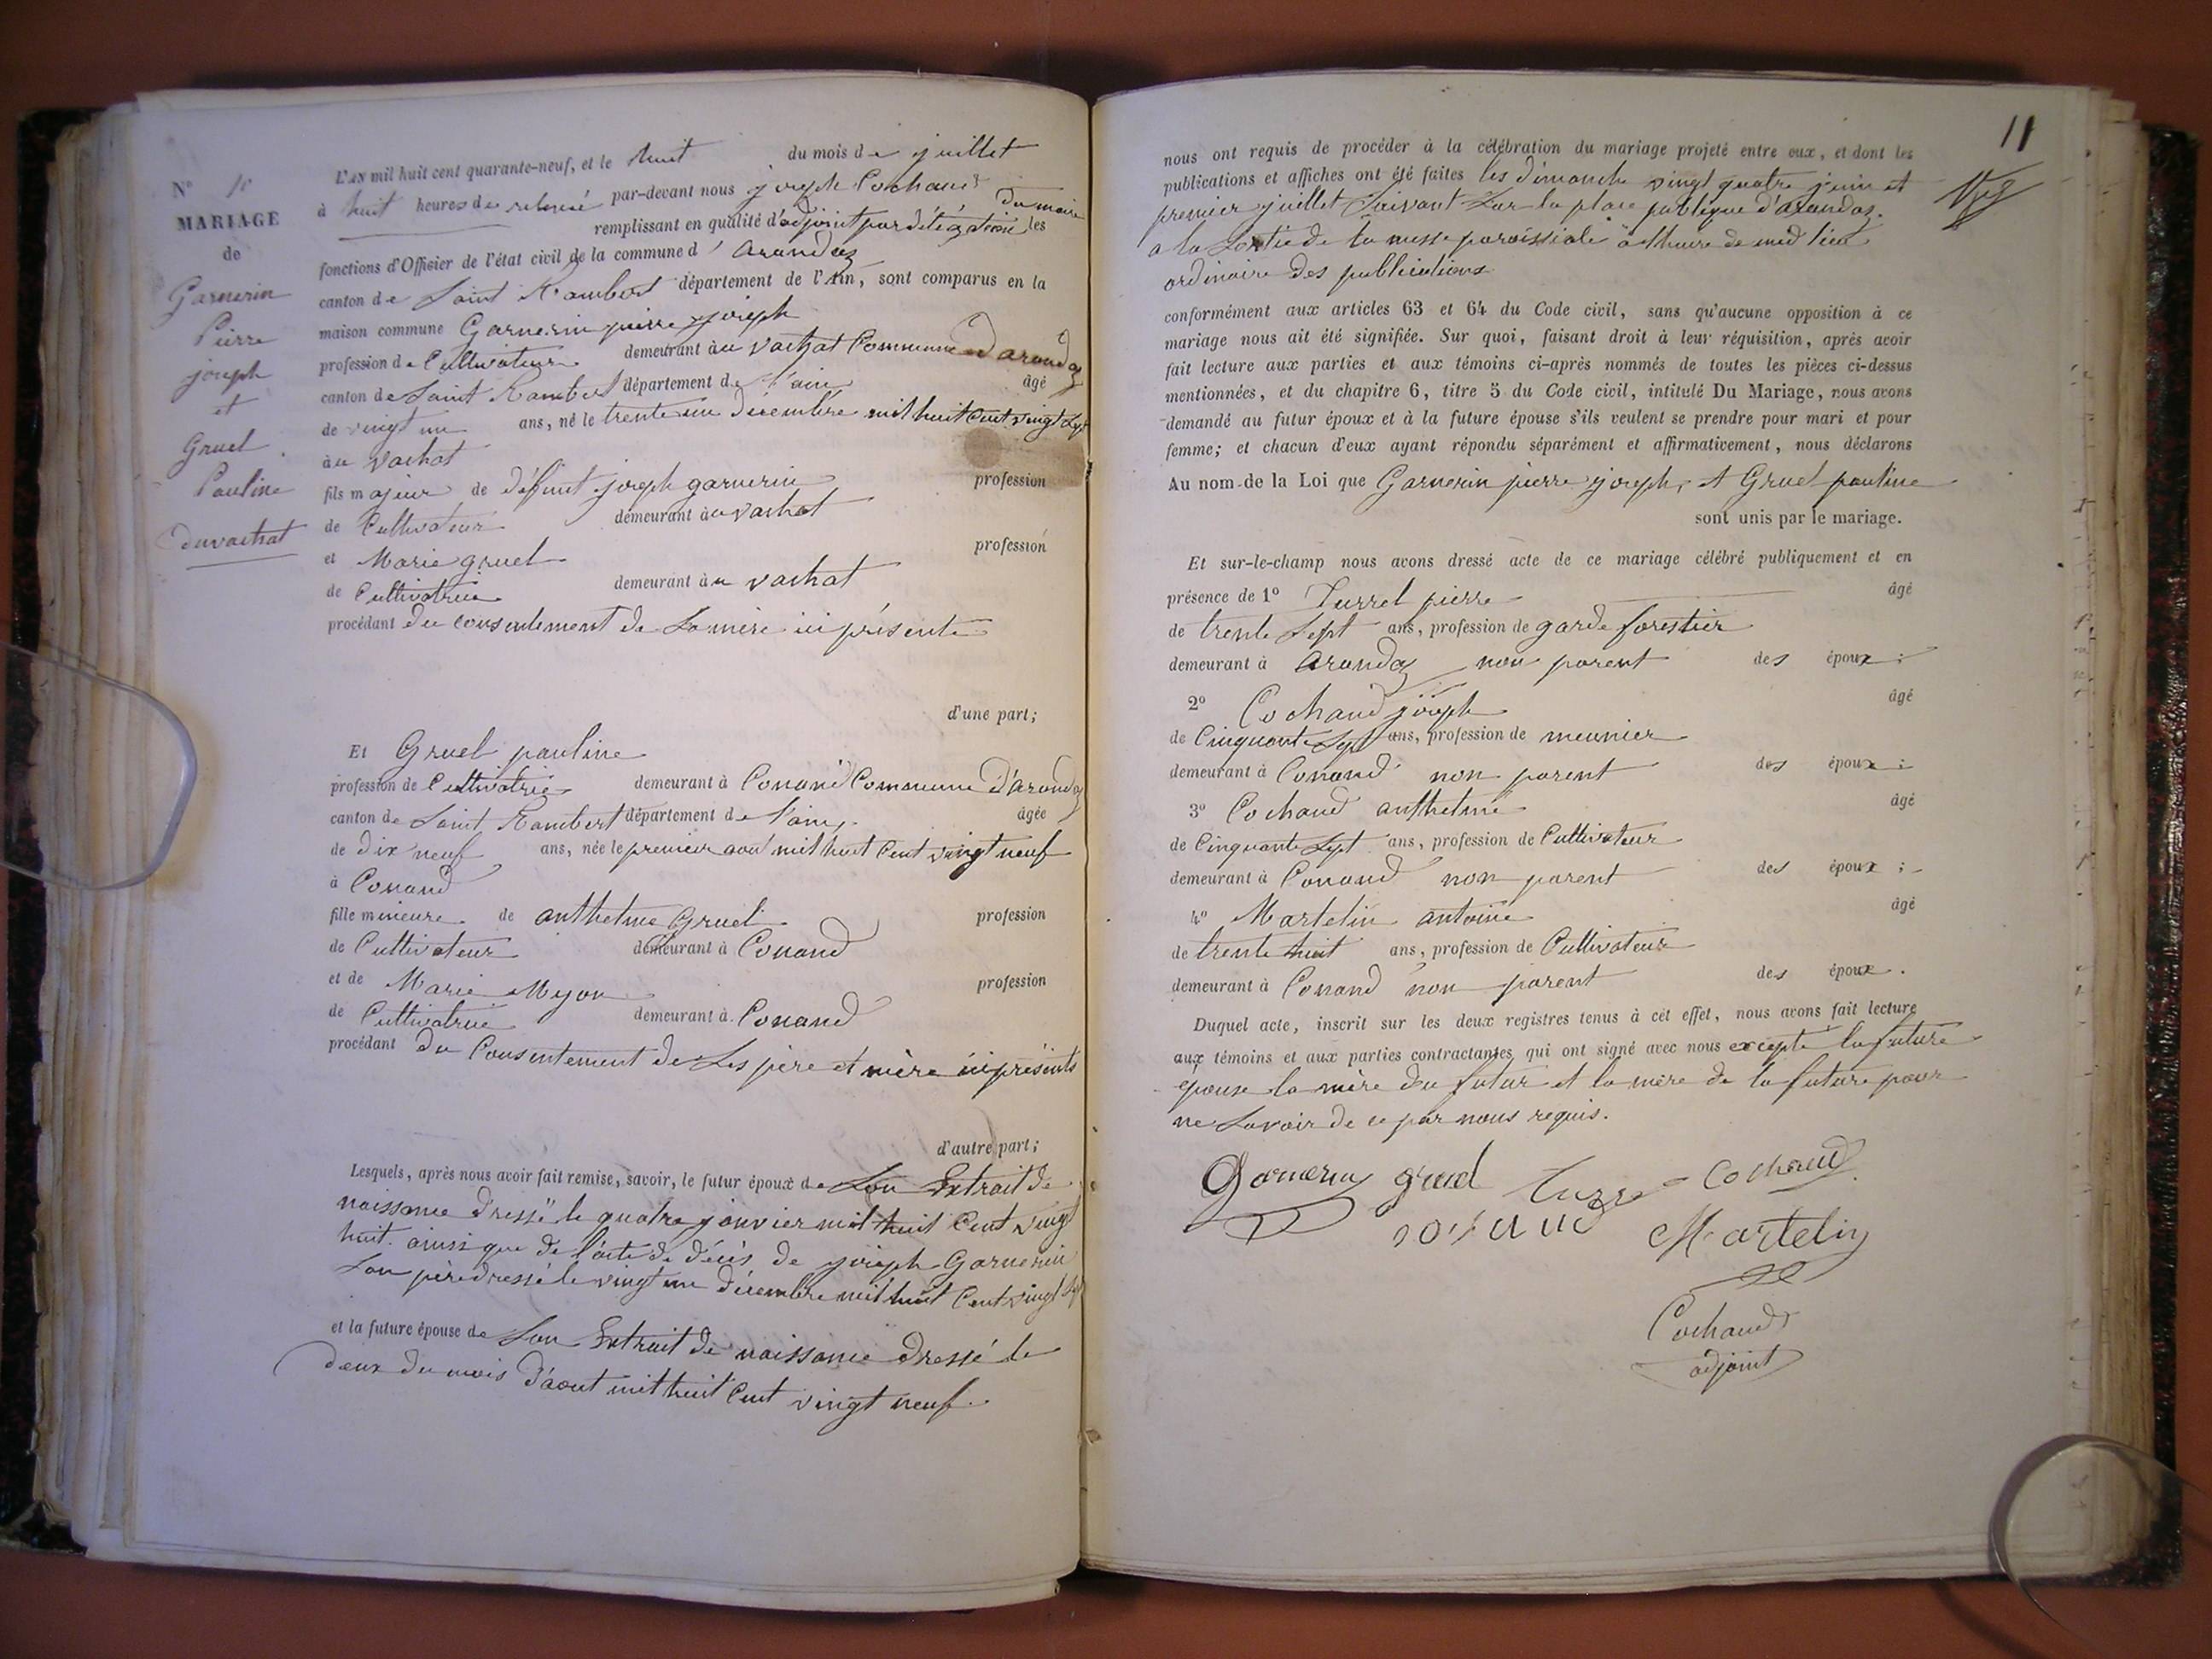 N° 10
MARIAGE
de
Garnerin
Pierre
joseph
et
Gruel
Pauline
du vachat
L'AN mil huit cent quarante-neuf, et le huit du mois de juillet
à huit heures de relevée par-devant nous joseph Cochaud
remplissant en qualité d'adjoint par délégation du maire les
fonctions d'Officier de l'état civil de la commune d' Arandas
canton de Saint Rambert département de l'Ain, sont comparus en la
maison commune Garnerin pierre joseph
profession de Cultivateur demeurant àu vachat Commune d'arandas
canton de Saint Rambert département de l'ain âgé
de vingt un ans, né le trente un décembre mil huit Cent vingt sept
àu vachat
fils majeur de défunt joseph garnerin profession
de Cultivateur demeurant àu vachat
et Marie gruel profession
de Cultivatrice demeurant àu vachat
procédant du consentement de Sa mère ici présente
d'une part;
Et Gruel pauline
profession de Cultivatrice demeurant à Conand Commune d'arandas
canton de Saint Rambert département de l'ain, âgée
de dix neuf ans, née le premier aout mil huit Cent vingt neuf
à Conand
fille mineure de anthelme Gruel profession
de Cultivateur demeurant à Conand
et de Marie Myon profession
de Cultivatrice demeurant à Conand
procédant du Consentement de Ses père et mère ici présents
d'autre part;
Lesquels, après nous avoir fait remise, savoir, le futur époux de Son Extrait de
naissance dressé le quatre janvier mil huit Cent vingt
huit. ainsi que de l'acte de décès de joseph Garnerin
Son père dressé le vingt un décembre mil huit Cent vingt sept
et la future épouse de Son Extrait de naissance dressé le
deux du mois d'aout mil huit Cent vingt neuf.
11
nous ont requis de procéder à la célébration du mariage projeté entre eux, et dont les
publications et affiches ont été faites les dimanche vingt quatre juin et
premier juillet Suivant Sur la place publique d'arandas.
a la Sortie de la messe paroissiale à l'heure de midi lieu
ordinaire des publications
conformément aux articles 63 et 64 du Code civil, sans qu'aucune opposition à ce
mariage nous ait été signifiée. Sur quoi, faisant droit à leur réquisition, après avoir
fait lecture aux parties et aux témoins ci-après nommés de toutes les pièces ci-dessus
mentionnées, et du chapitre 6, titre 5 du Code civil, intitulé Du Mariage, nous avons
demandé au futur époux et à la future épouse s'ils veulent se prendre pour mari et pour
femme; et chacun d'eux ayant répondu séparément et affirmativement, nous déclarons
Au nom de la Loi que Garnerin pierre joseph, et Gruel pauline
sont unis par le mariage.
Et sur-le-champ nous avons dressé acte de ce mariage célébré publiquement et en
présence de 1° Turrel pierre âgé
de trente Sept ans, profession de garde forestier
demeurant à arandas non parent des époux;
2° Cochaud joseph âgé
de Cinquante Sept ans, profession de meunier
demeurant à Conand non parent des époux;
3° Cochaud anthelme âgé
de Cinquante Sept ans, profession de Cultivateur
demeurant à Conand non parent des époux;
4° Martelin antoine âgé
de trente huit ans, profession de Cultivateur
demeurant à Conand non parent des époux.
Duquel acte, inscrit sur les deux registres tenus à cet effet, nous avons fait lecture
aux témoins et aux parties contractantes qui ont signé avec nous excepté la future
épouse la mère du futur et la mère de la future pour
ne Savoir de ce par nous requis.
Garnerin gruel Cochaud
Martelin
Cochaud
adjoint